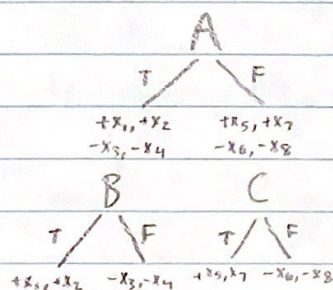 A
T F
+x₁, +x₂ +x₅, +x₇
-x₃, -x₄ -x₆, -x₈
B C
T F T F
+x₁, +x₂ -x₃, -x₄ +x₅, x₇ -x₆, -x₈